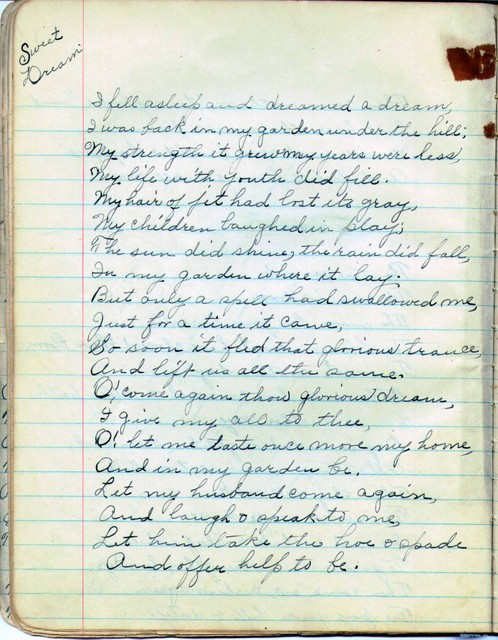 Sweet
Dream
I fell asleep and dreamed a dream,
I was back in my garden under the hill;
My strength it grew my years were less,
My life with youth did fill.
My hair of jet had lost its gray,
My children laughed in play;
The sun did shine, the rain did fall,
In my garden where it lay.
But only a spell had swallowed me,
Just for a time it came,
So soon it fled that glorious trance,
And left us all the same.
O, come again thou glorious dream,
I give my all to thee,
O! let me taste once more my home,
And in my garden be.
Let my husband come again,
And laugh & speak to me,
Let him take the hoe & spade
And offer help to be.